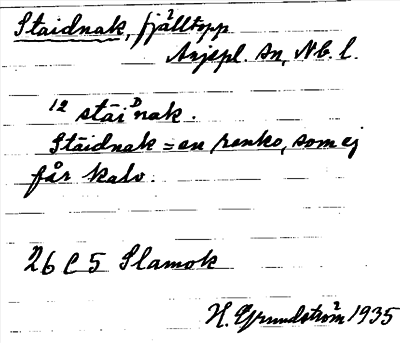 Staidnak, fjälltopp
Arjepl. sn, Nb. l.
12 stāiᴰnak.
Stāidnak = en renko, som ej
får kalv.
26 C 5 Slamok
H. Grundström 1935